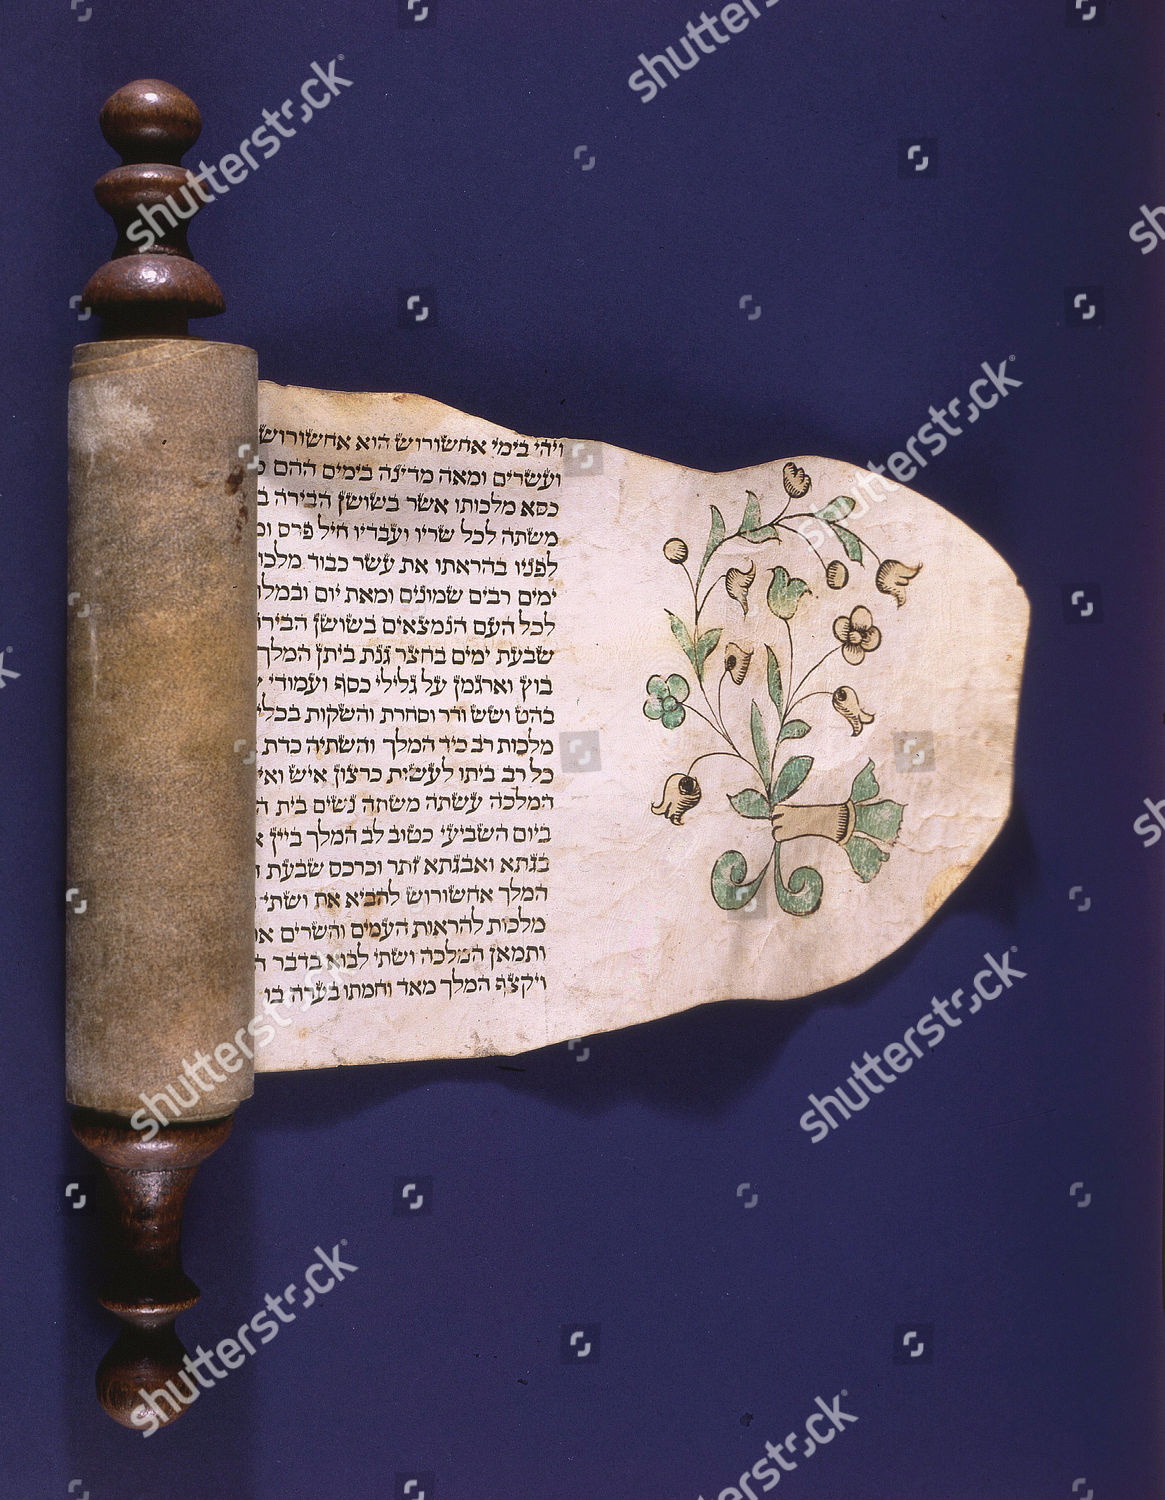 ויהי בימי אחשורוש הוא אחשורוש
ועשרים ומאה מדינה בימים ההם
כסא מלכותו אשר בשושן הבירה
משתה לכל שריו ועבדיו חיל פרס
לפניו בהראתו את עשר כבוד מלכו
ימים רבים שמונים ומאת יום ובמלו
לכל העם הנמצאים בשושן הביר
שבעת ימים בחצר גנת ביתן המלך
בוץ וארגמן על גלילי כסף ועמודי
בהט ושש ודר וסחרת והשקות בכלי
מלכות רב כיד המלך והשתיה כדת
כל רב ביתו לעשות כרצון איש ואי
המלכה עשתה משתה נשים בית ה
ביום השביעי כטוב לב המלך ביין
בגתא ואבגתא זתר וכרכס שבעת ה
המלך אחשורוש להביא את ושתי
מלכות להראות העמים והשרים את
ותמאן המלכה ושתי לבוא בדבר ה
ויקצף המלך מאד וחמתו בערה בו
shutterstock
shutterstock
shutterstock
shutterstock
shutterstock
shutterstock